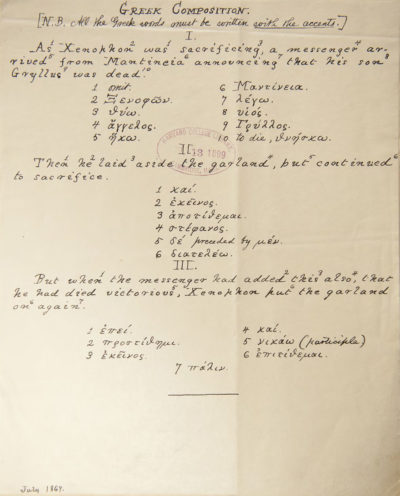 GREEK COMPOSITION.
[N.B. All the Greek words must be written with the accents.]
I.
As¹ Xenophon² was¹ sacrificing,³ a messenger⁴ ar-
rived⁵ from Mantineia⁶ announcing⁷ that his son⁸
Gryllus⁹ was dead.¹⁰
1 omit.
2 Ξενοφῶν.
3 θύω.
4 ἄγγελος.
5 ἥκω.
6 Μαντίνεια.
7 λέγω.
8 υἱός.
9 Γρύλλος.
10 to die, θνήσκω.
HARVARD COLLEGE
1899
II.
Then¹ he² laid³ aside the garland⁴, but⁵ continued⁶
to sacrifice.
1 καί.
2 ἐκεῖνος.
3 ἀποτίθεμαι.
4 στέφανος.
5 δέ preceded by μέν.
6 διατελέω.
III.
But when¹ the messenger had added² this³ also⁴, that
he had died victorious,⁵ Xenophon put⁶ the garland
on⁶ again⁷.
1 ἐπεί.
2 προστίθημι.
3 ἐκεῖνος.
4 καί.
5 νικάω (participle)
6 ἐπιτίθεμαι.
7 πάλιν.
July 1869.